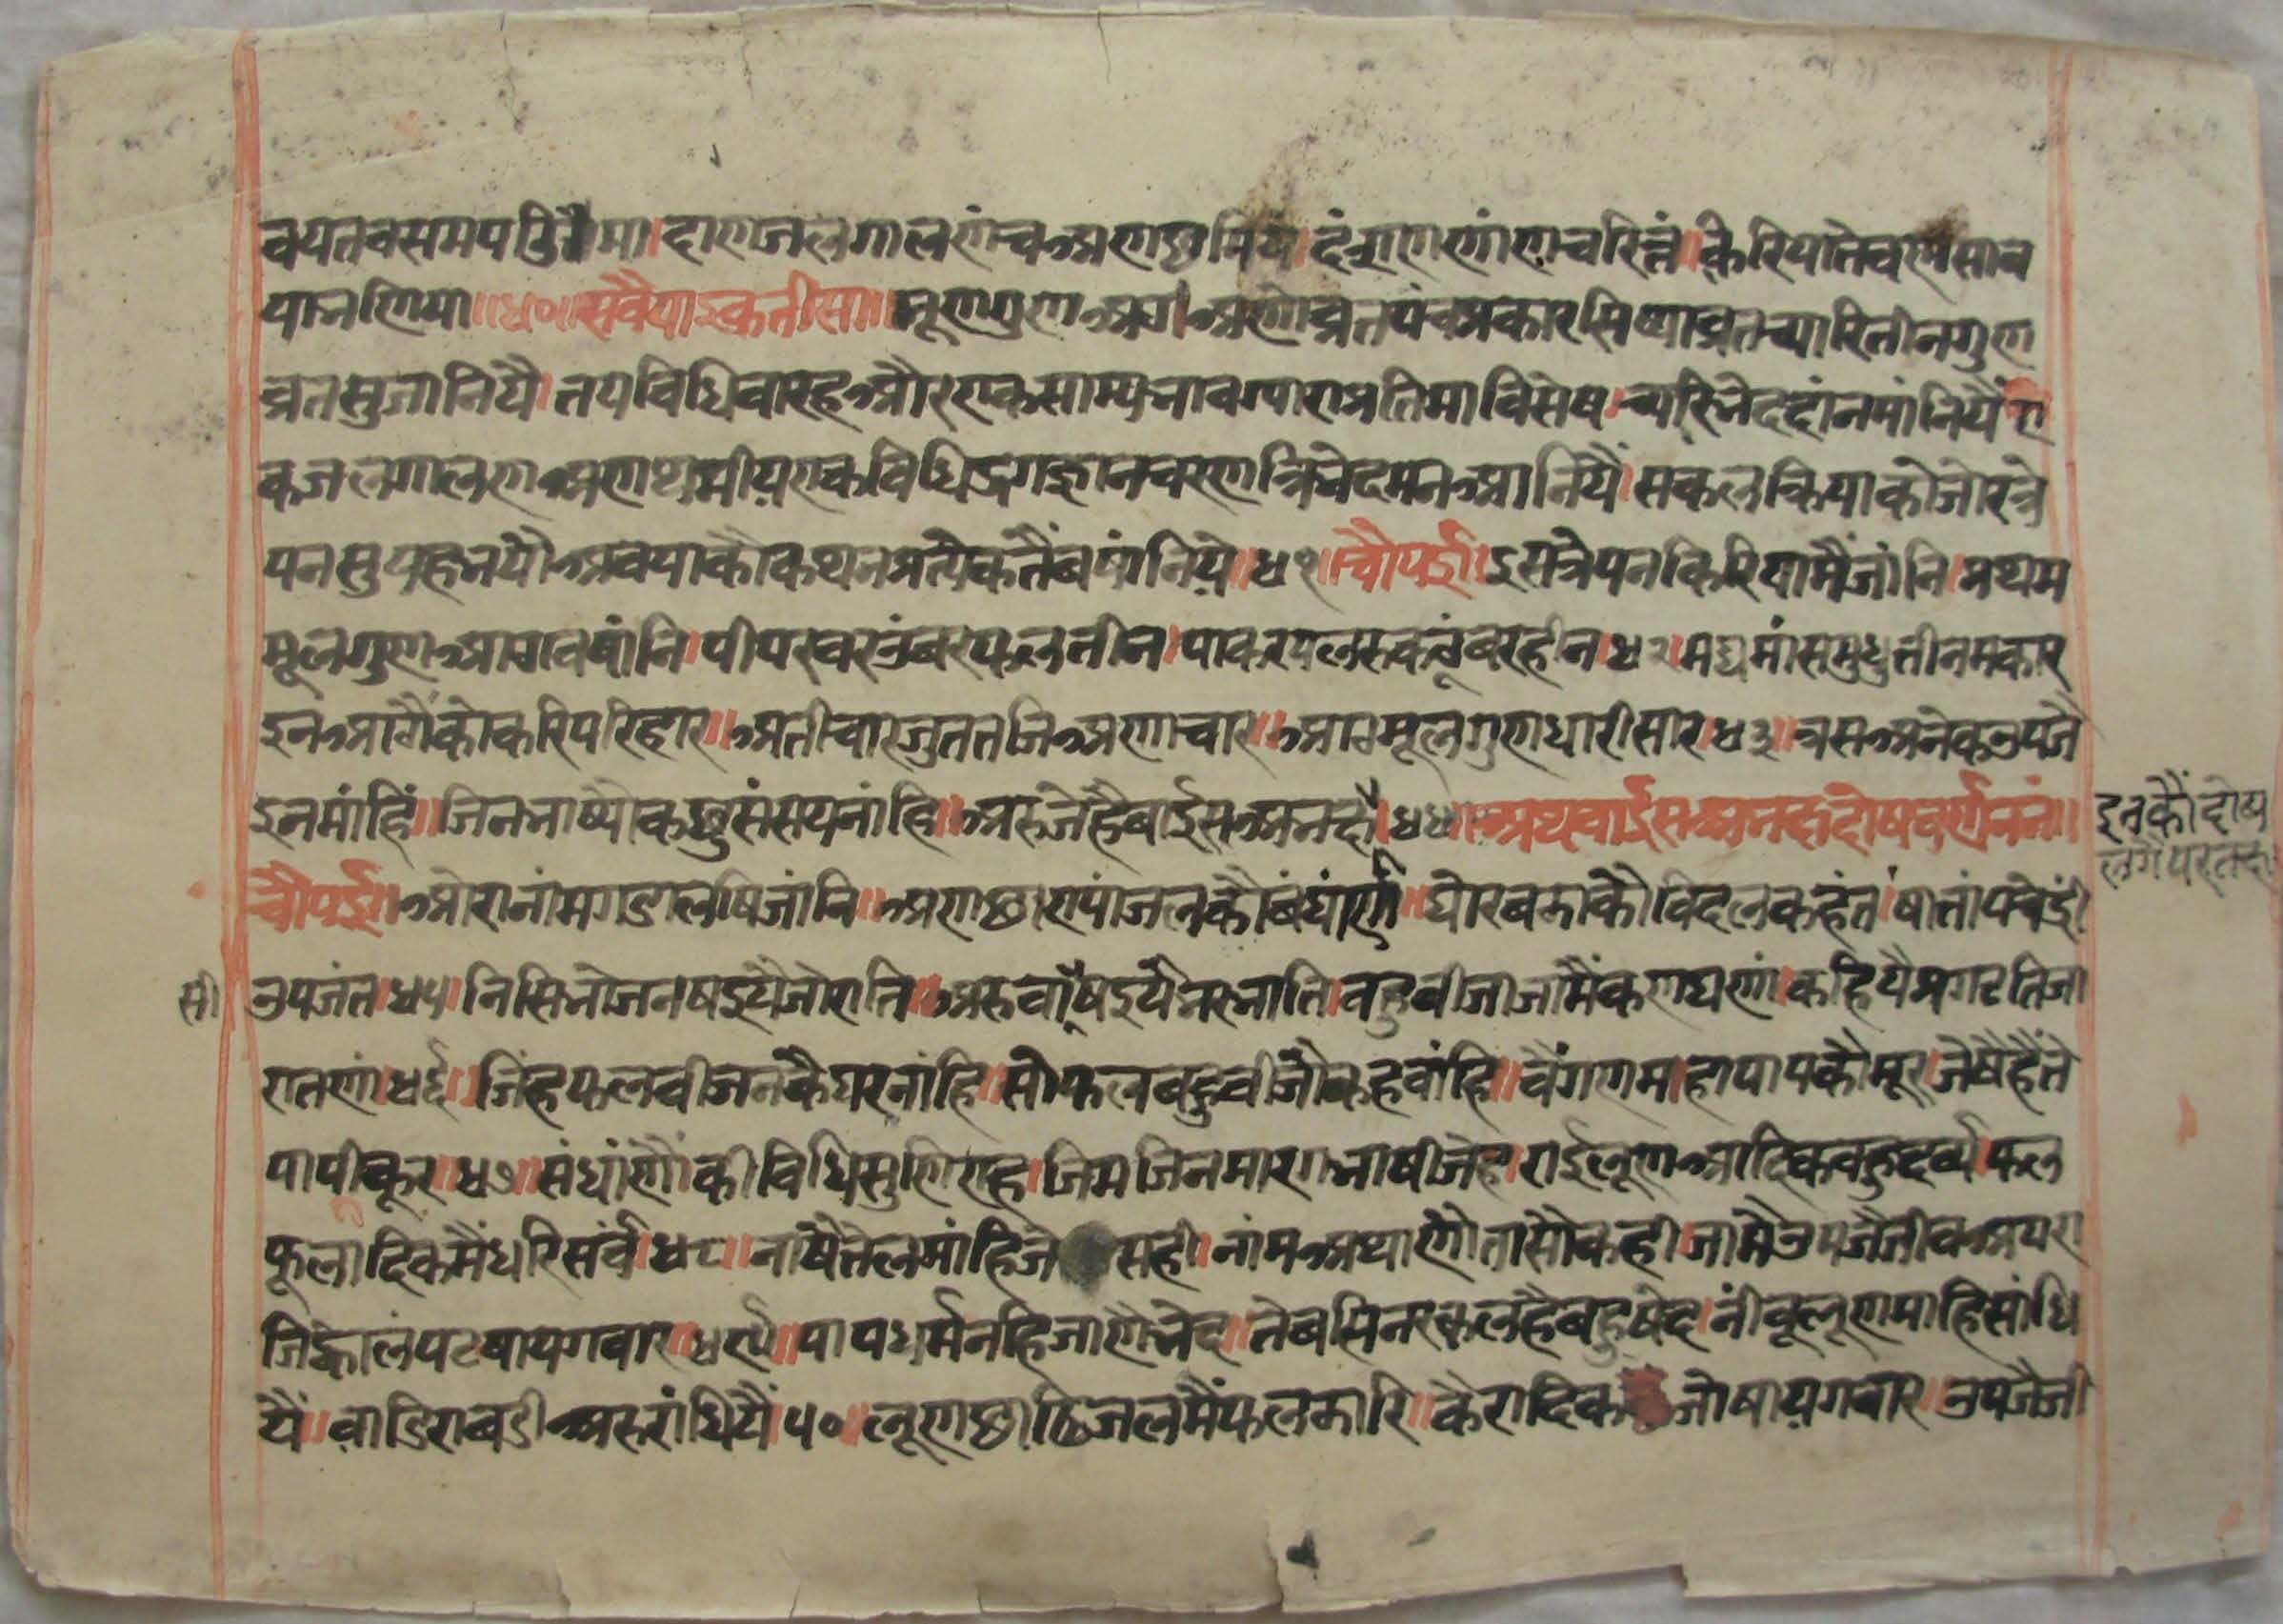 वयतवसमपडिमा।दाणजलगालणंचअणछमियं।दंसणणांणचरित्तं॥किरियातेवणसाव
याभणिया॥४०॥सवैयाइकतीसा॥मूलगुणआठअणोव्रतपंचप्रकारसिष्याव्रतच्यारितीनगुण
व्रतसुजानियै।तपविधिबारहऔरएकसाम्यभावग्याराप्रतिमाविसेष।च्यारिभेददांनमांनियैं।ए
कजलगालणअणथमीयएकविधिदृगज्ञानचरणत्रिभेदमनआनियैं।सकलक्रियाकोजोरत्रे
पनसुयहभयौअवयाकौकथनप्रत्येकतैंबषांनिये॥४१॥चौपई॥इसत्रेपनकिरियामैंजांनि।प्रथम
मूलगुणआठवषांनि।पीपरवरउंबरफलतीन।पाकरफलरुकठूंबरहीन।४२।मद्यमांसमुधुतीनमकार
इनआठौंकोकरिपरिहार॥अतीचारजुततजिअणाचार॥आठमूलगुणधारीसार।४३॥त्रसअनेकउपजे
इनमांहिं॥जिनभाष्योकछुसंसयनांहि॥अरुजेहैबाईसअभक्ष।४४॥अथबाईसअभक्षदोषवर्णननं॥
इनकौंदोष
लगैपरतक्ष
चौपई॥ओरानांमगडालषिजांनि॥अणछाणपांजलकौबंघांणं॥घोरबडाकौविदलकहंत।षातांपचेंद्री
उपजंत।४५।निसिभोजनषइयैजोराति॥अरुवांषइयेंभरभाति।बहुबीजीजामैंकणघणां।कहियैप्रगटतिजा
सी
रातणां।४६॥जिंहफलबीजनकैघरनांहि॥सोफलबहुबीजौकहवांहि॥बैंगणमाहापापकौमूर।जेषैहैंते
पापीकूर॥४७॥संधांणौंकीविधिसुणिएह।जिमजिनमारगभाषीजेह।राईलूणआदिकबहुदर्व्य।फल
फूलादिकमैंधरिसर्व।४८॥नांषैतेलमांहिजे सही।नांमअथाणोंतासौकही।जामैउपजैजीवअपरा
जिह्वालंपटषायगवार॥४९॥पापधर्मनहिजाणैभेद॥तेबसिनरकलहैबहुषेद।नींबूलूणमाहिसांधि
यैं॥वाडिराबडीअरुरांधियैं।५०॥लूणछाछिजलमैंफलडारि॥कैरादिक जोषायगवार॥उपजैजी